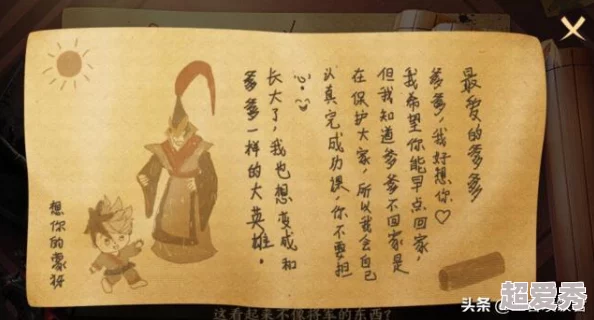 最爱的爹爹
爹爹，我好想你♡
我希望你能早点回家，
但我知道爹爹不回家是
在保护大家，所以我会自己
认真完成功课，你不要担
心。
长大了，我也想变成和
爹爹一样的大英雄。
想你的霖将
这看起来不像将军的东西？
头条
超爱秀